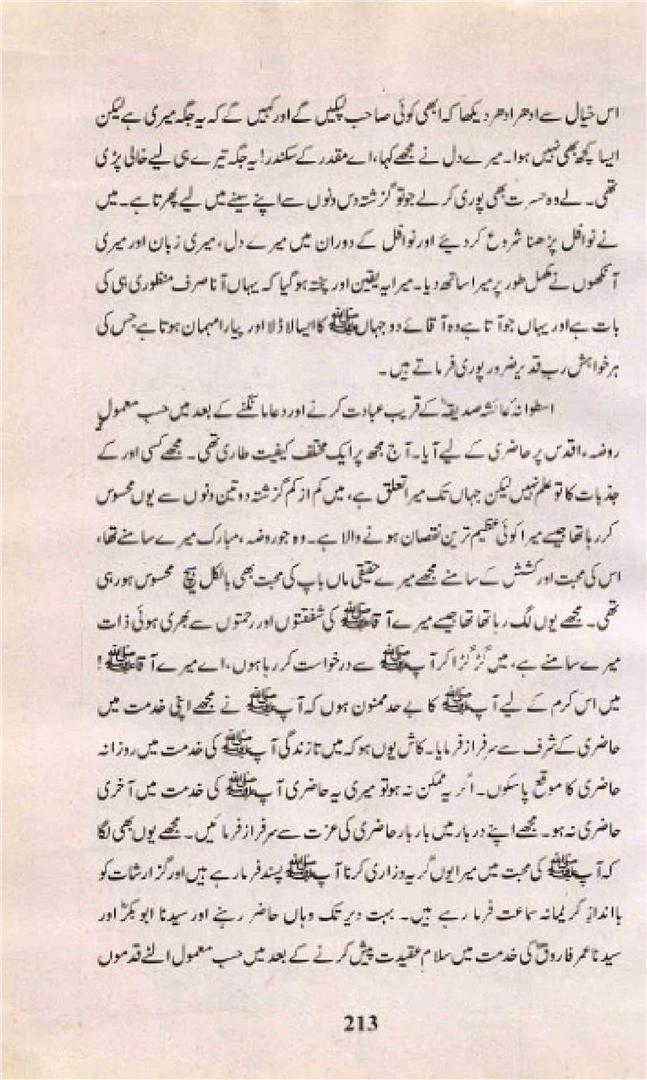 اس خیال سے ادھر ادھر دیکھا کہ ابھی کوئی صاحب لپکیں گے اور کہیں گے کہ یہ جگہ میری ہے لیکن
ایسا کچھ بھی نہیں ہوا۔ میرے دل نے مجھے کہا، اے مقدر کے سکندر! یہ جگہ تیرے ہی لیے خالی پڑی
تھی۔ لے وہ حسرت بھی پوری کر لے جو تو گزشتہ دس دنوں سے اپنے سینے میں لیے پھرتا ہے۔ میں
نے نوافل پڑھنا شروع کر دیئے اور نوافل کے دوران میں میرے دل، میری زبان اور میری
آنکھوں نے مکمل طور پر میرا ساتھ دیا۔ میرا یہ یقین اور پختہ ہو گیا کہ یہاں آنا صرف منظوری ہی کی
بات ہے اور یہاں جو آتا ہے وہ آقائے دو جہاں ﷺ کا ایسا لاڈلا اور پیارا مہمان ہوتا ہے جس کی
ہر خواہش رب قدیر ضرور پوری فرماتے ہیں۔
اسطوانۂ عائشہ صدیقہؓ کے قریب عبادت کرنے اور دعا مانگنے کے بعد میں حسب معمول
روضۂ اقدس پر حاضری کے لیے آیا۔ آج مجھ پر ایک مختلف کیفیت طاری تھی۔ مجھے کسی اور کے
جذبات کا تو علم نہیں لیکن جہاں تک میرا تعلق ہے، میں کم از کم گزشتہ دو تین دنوں سے یوں محسوس
کر رہا تھا جیسے میرا کوئی عظیم ترین نقصان ہونے والا ہے۔ وہ جو روضہ ء مبارک میرے سامنے تھا،
اس کی محبت اور کشش کے سامنے مجھے میرے حقیقی ماں باپ کی محبت بھی بالکل ہیچ محسوس ہو رہی
تھی۔ مجھے یوں لگ رہا تھا تھا جیسے میرے آقا ﷺ کی شفقتوں اور رحمتوں سے بھری ہوئی ذات
میرے سامنے ہے، میں گڑگڑا کر آپ ﷺ سے درخواست کر رہا ہوں، اے میرے آقا ﷺ!
میں اس کرم کے لیے آپ ﷺ کا بے حد ممنون ہوں کہ آپ ﷺ نے مجھے اپنی خدمت میں
حاضری کے شرف سے سرفراز فرمایا۔ کاش یوں ہو کہ میں تا زندگی آپ ﷺ کی خدمت میں روزانہ
حاضری کا موقع پا سکوں۔ اگر یہ ممکن نہ ہو تو میری یہ حاضری آپ ﷺ کی خدمت میں آخری
حاضری نہ ہو۔ مجھے اپنے دربار میں بار بار حاضری کی عزت سے سرفراز فرمائیں۔ مجھے یوں بھی لگا
کہ آپ ﷺ کی محبت میں میرا یوں گریہ و زاری کرنا آپ ﷺ پسند فرما رہے ہیں اور گزارشات کو
با انداز کریمانہ سماعت فرما رہے ہیں۔ بہت دیر تک وہاں حاضر رہنے اور سیدنا ابو بکرؓ اور
سیدنا عمر فاروقؓ کی خدمت میں سلام عقیدت پیش کرنے کے بعد میں حسب معمول الٹے قدموں
213